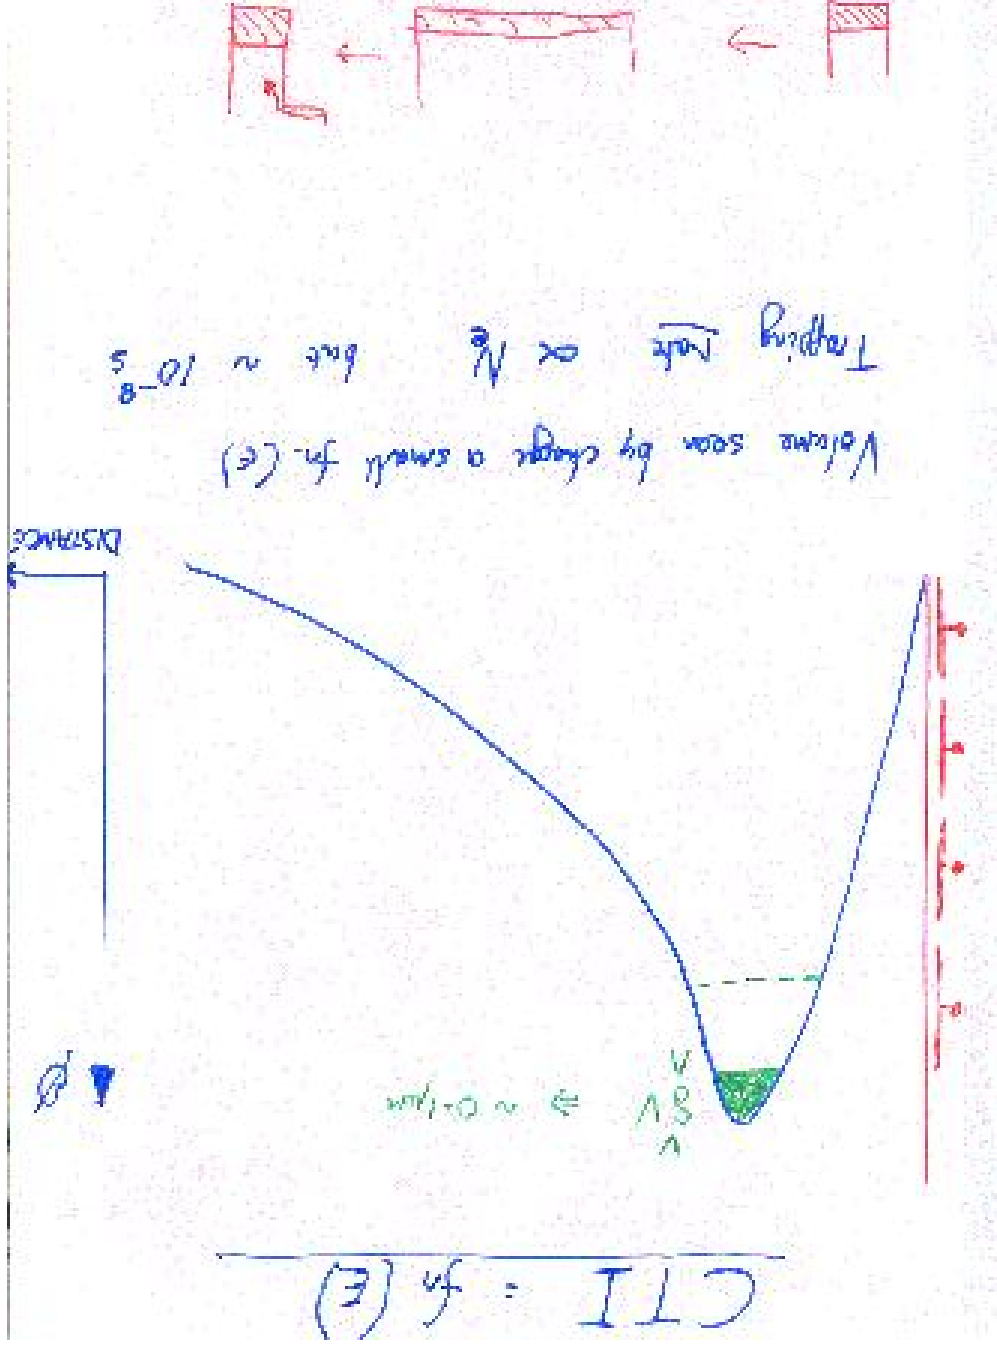 CTI = fn (E)
⇒ ~ 0.1μm
Ø
DISTANCE
Volume seen by charge a small fn (E)
Trapping rate ∝ Nₑ but ~ 10⁻⁸ s